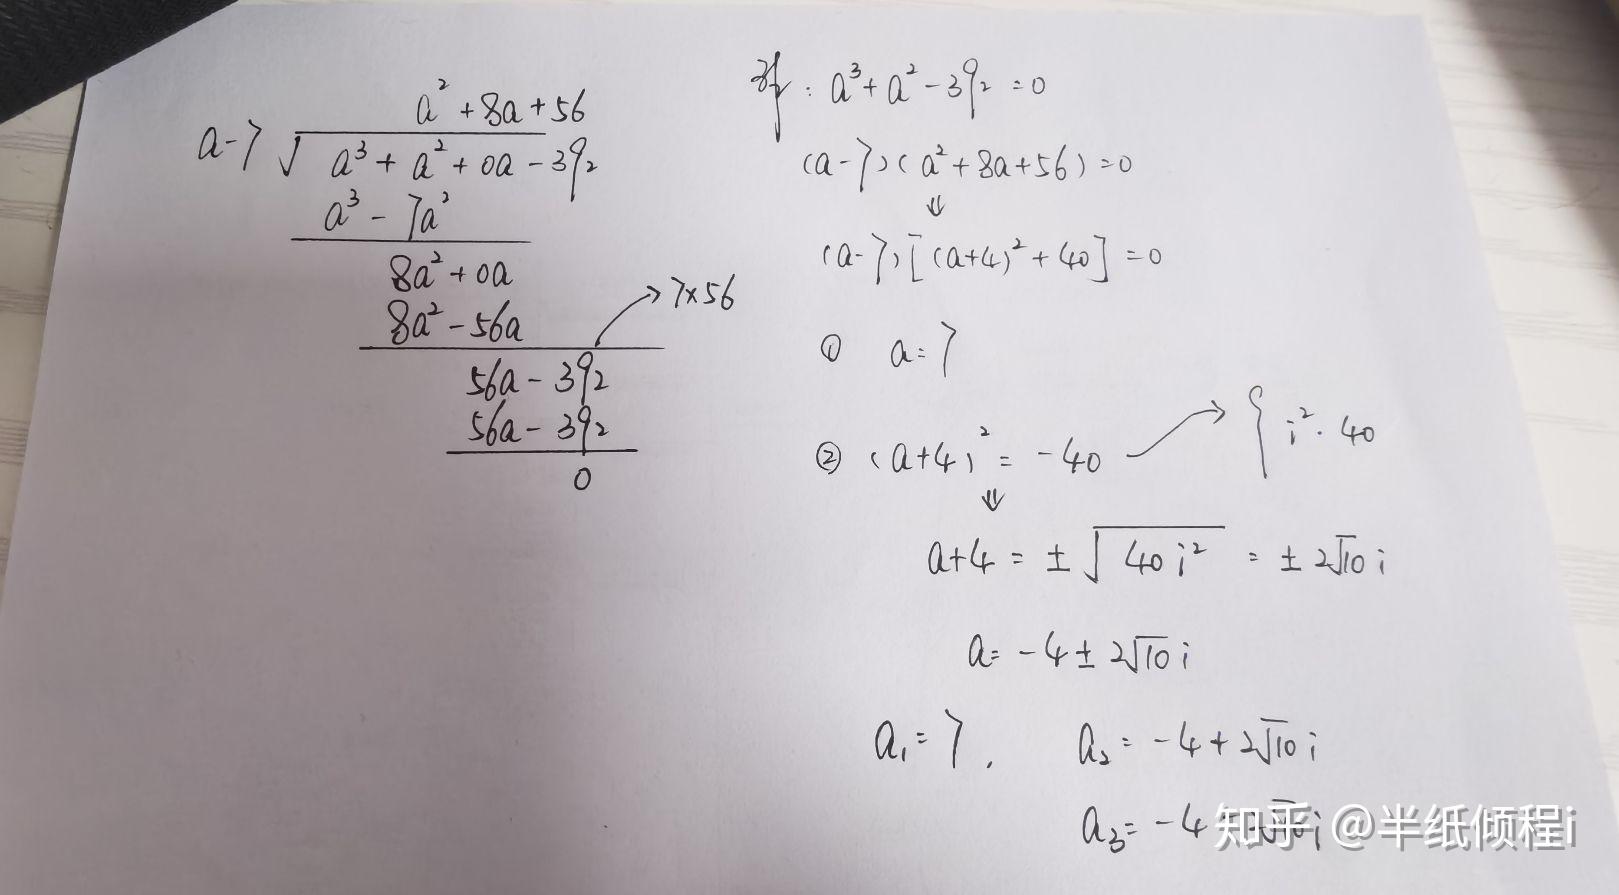 a² + 8a + 56
a-7 √ a³ + a² + 0a - 392
a³ - 7a²
8a² + 0a
8a² - 56a
→ 7×56
56a - 392
56a - 392
0
: a³ + a² - 392 = 0
(a-7)(a² + 8a + 56) = 0
⇓
(a-7)[(a+4)² + 40] = 0
① a = 7
② (a+4)² = -40 → { i² · 40
⇓
a+4 = ±√40i² = ±2√10 i
a = -4 ± 2√10 i
a₁ = 7, a₂ = -4 + 2√10 i
a₃ = -4
知乎 @半纸倾程i